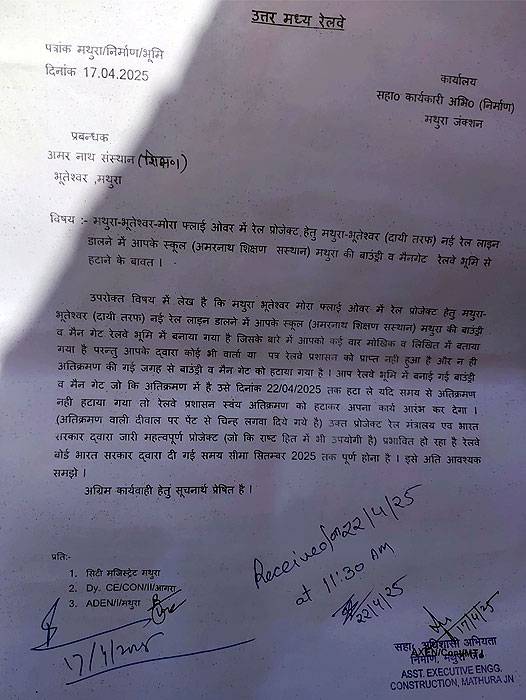 उत्तर मध्य रेलवे
पत्रांक मथुरा/निर्माण/भूमि
दिनांक 17.04.2025
कार्यालय
सहा० कार्यकारी अभि० (निर्माण)
मथुरा जंक्शन
प्रबन्धक
अमर नाथ संस्थान (शिक्षण)
भूतेश्वर ,मथुरा
विषय :- मथुरा-भूतेश्वर-मोरा फ्लाई ओवर में रेल प्रोजेक्ट हेतु मथुरा-भूतेश्वर (दायी तरफ) नई रेल लाइन
डालने में आपके स्कूल (अमरनाथ शिक्षण संस्थान) मथुरा की बाउंड्री व मैनगेट रेलवे भूमि से
हटाने के बावत ।
उपरोक्त विषय में लेख है कि मथुरा भूतेश्वर मोरा फ्लाई ओवर में रेल प्रोजेक्ट हेतु मथुरा-
भूतेश्वर (दायी तरफ) नई रेल लाइन डालने में आपके स्कूल (अमरनाथ शिक्षण संस्थान) मथुरा की बाउंड्री
व मैन गेट रेलवे भूमि में बनाया गया है जिसके बारे में आपको कई वार मोखिक व लिखित में बताया
गया है परन्तु आपके द्वारा कोई भी वार्ता या पत्र रेलवे प्रशासन को प्राप्त नही हुआ है और न ही
अतिक्रमण की गई जगह से बाउंड्री व मैन गेट को हटाया गया है । आप रेलवे भूमि में बनाई गई बाउंड्री
व मैन गेट जो कि अतिक्रमण में है उसे दिनांक 22/04/2025 तक हटा ले यदि समय से अतिक्रमण
नही हटाया गया तो रेलवे प्रशासन स्वंय अतिक्रमण को हटाकर अपना कार्य आरंभ कर देगा ।
(अतिक्रमण वाली दीवाल पर पेंट से चिन्ह लगवा दिये गये है) उक्त प्रोजेक्ट रेल मंत्रालय एव भारत
सरकार द्वारा जारी महत्वपूर्ण प्रोजेक्ट (जो कि राष्ट हित में भी उपयोगी है) प्रभावित हो रहा है रेलवे
बोर्ड भारत सरकार द्वारा दी गई समय सीमा सितम्बर 2025 तक पूर्ण होना है । इसे अति आवश्यक
समझे ।
अग्रिम कार्यवाही हेतुं सूचनार्थ प्रेषित है ।
Received on 22/4/25
at 11:30 AM
22/4/25
प्रति:-
1. सिटी मजिस्ट्रेट मथुरा
2. Dy. CE/CON/II/आगरा
3. ADEN/I/मथुरा
17/4/2025
17/4/25
सहा. अधिशासी अभियंता
निर्माण, मथुरा जं.
AXEN/Con/MTJ
ASST. EXECUTIVE ENGG.
CONSTRUCTION, MATHURA JN